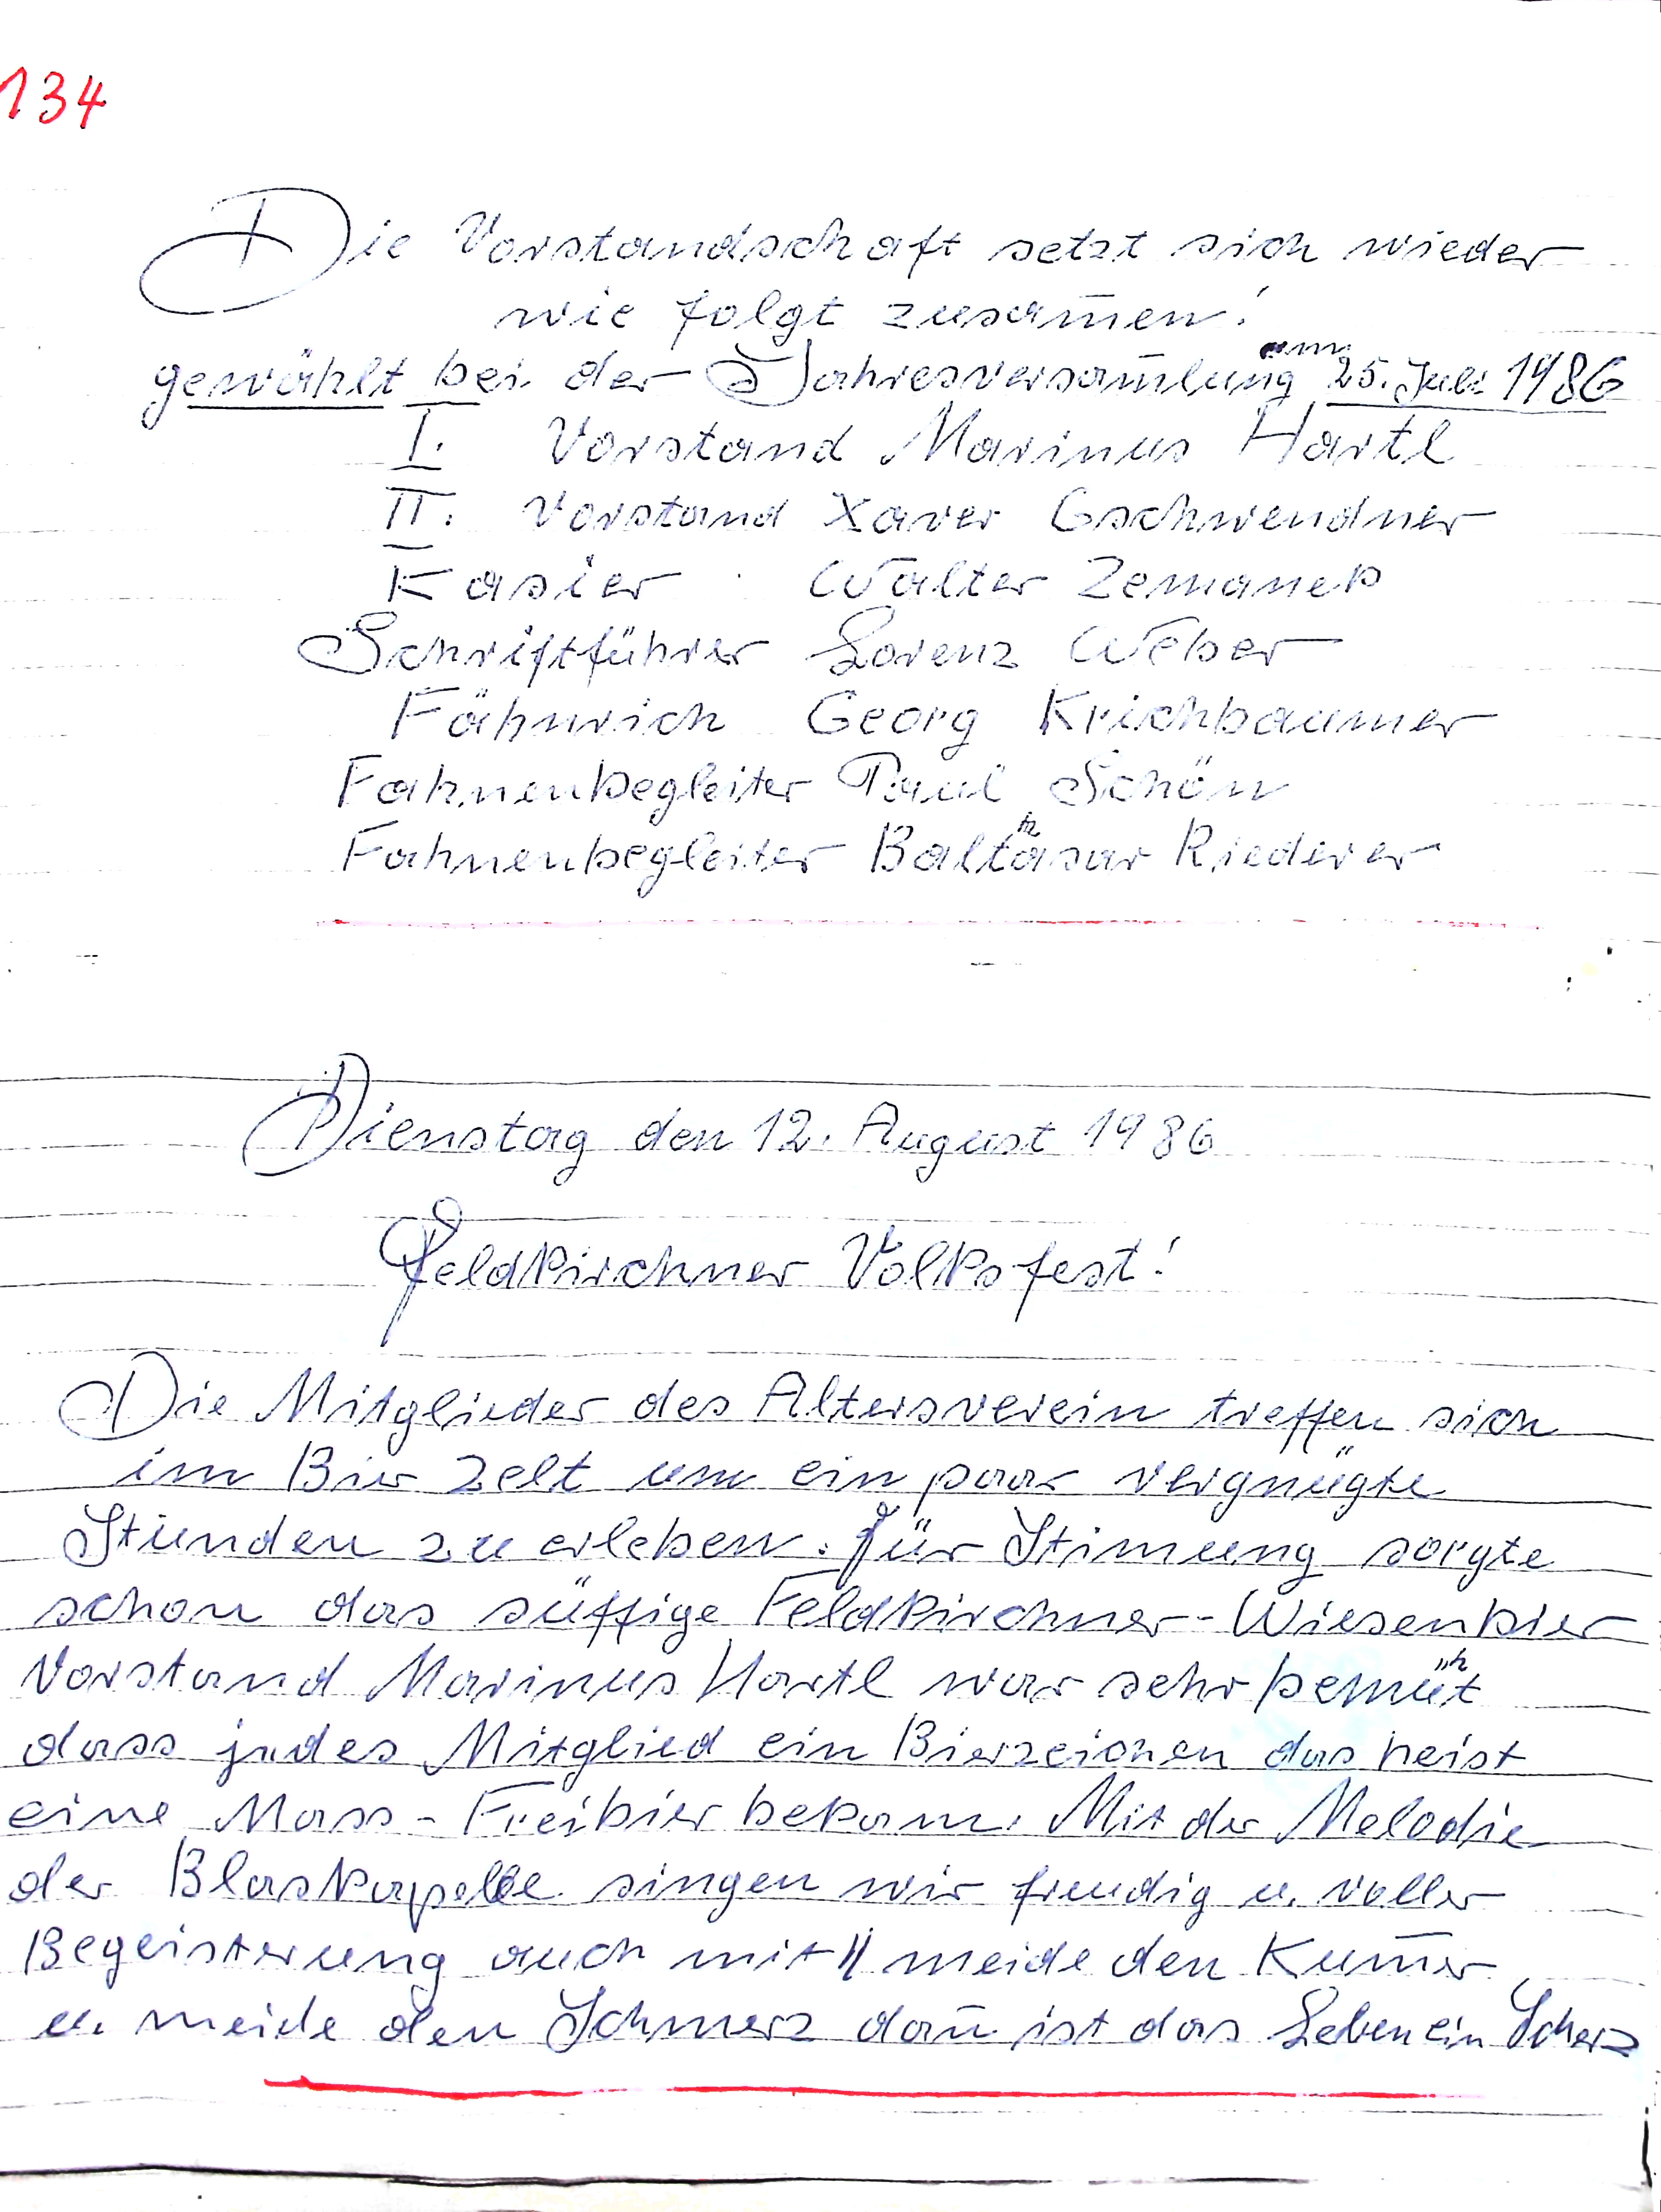 134
Die Vorstandschaft setzt sich wieder
wie folgt zusam̄en!
gewählt bei der Jahresversam̄lung am 25. Juli 1986
I. Vorstand Marinus Hartl
II. Vorstand Xaver Gschwendner
Kasier Walter Zemanek
Schriftführer Lorenz Weber
Fähnrich Georg Krichbaumer
Fahnenbegleiter Paul Schön
Fahnenbegleiter Balthasar Riederer
Dienstag den 12. August 1986
Feldkirchner Volksfest!
Die Mitglieder des Altersverein treffen sich
im Bier Zelt um ein paar vergnügte
Stunden zu erleben. Für Stimung sorgte
schon das süffige Feldkirchner-Wiesenbier
Vorstand Marinus Hartl war sehr bemüht
dass jedes Mitglied ein Bierzeichen das heist
eine Mass-Freibier bekam. Mit der Melodie
der Blaskapelle singen wir freudig u. voller
Begeisterung auch mit || meide den Kum̄er
u. meide den Schmerz dan̄ ist das Leben ein Scherz